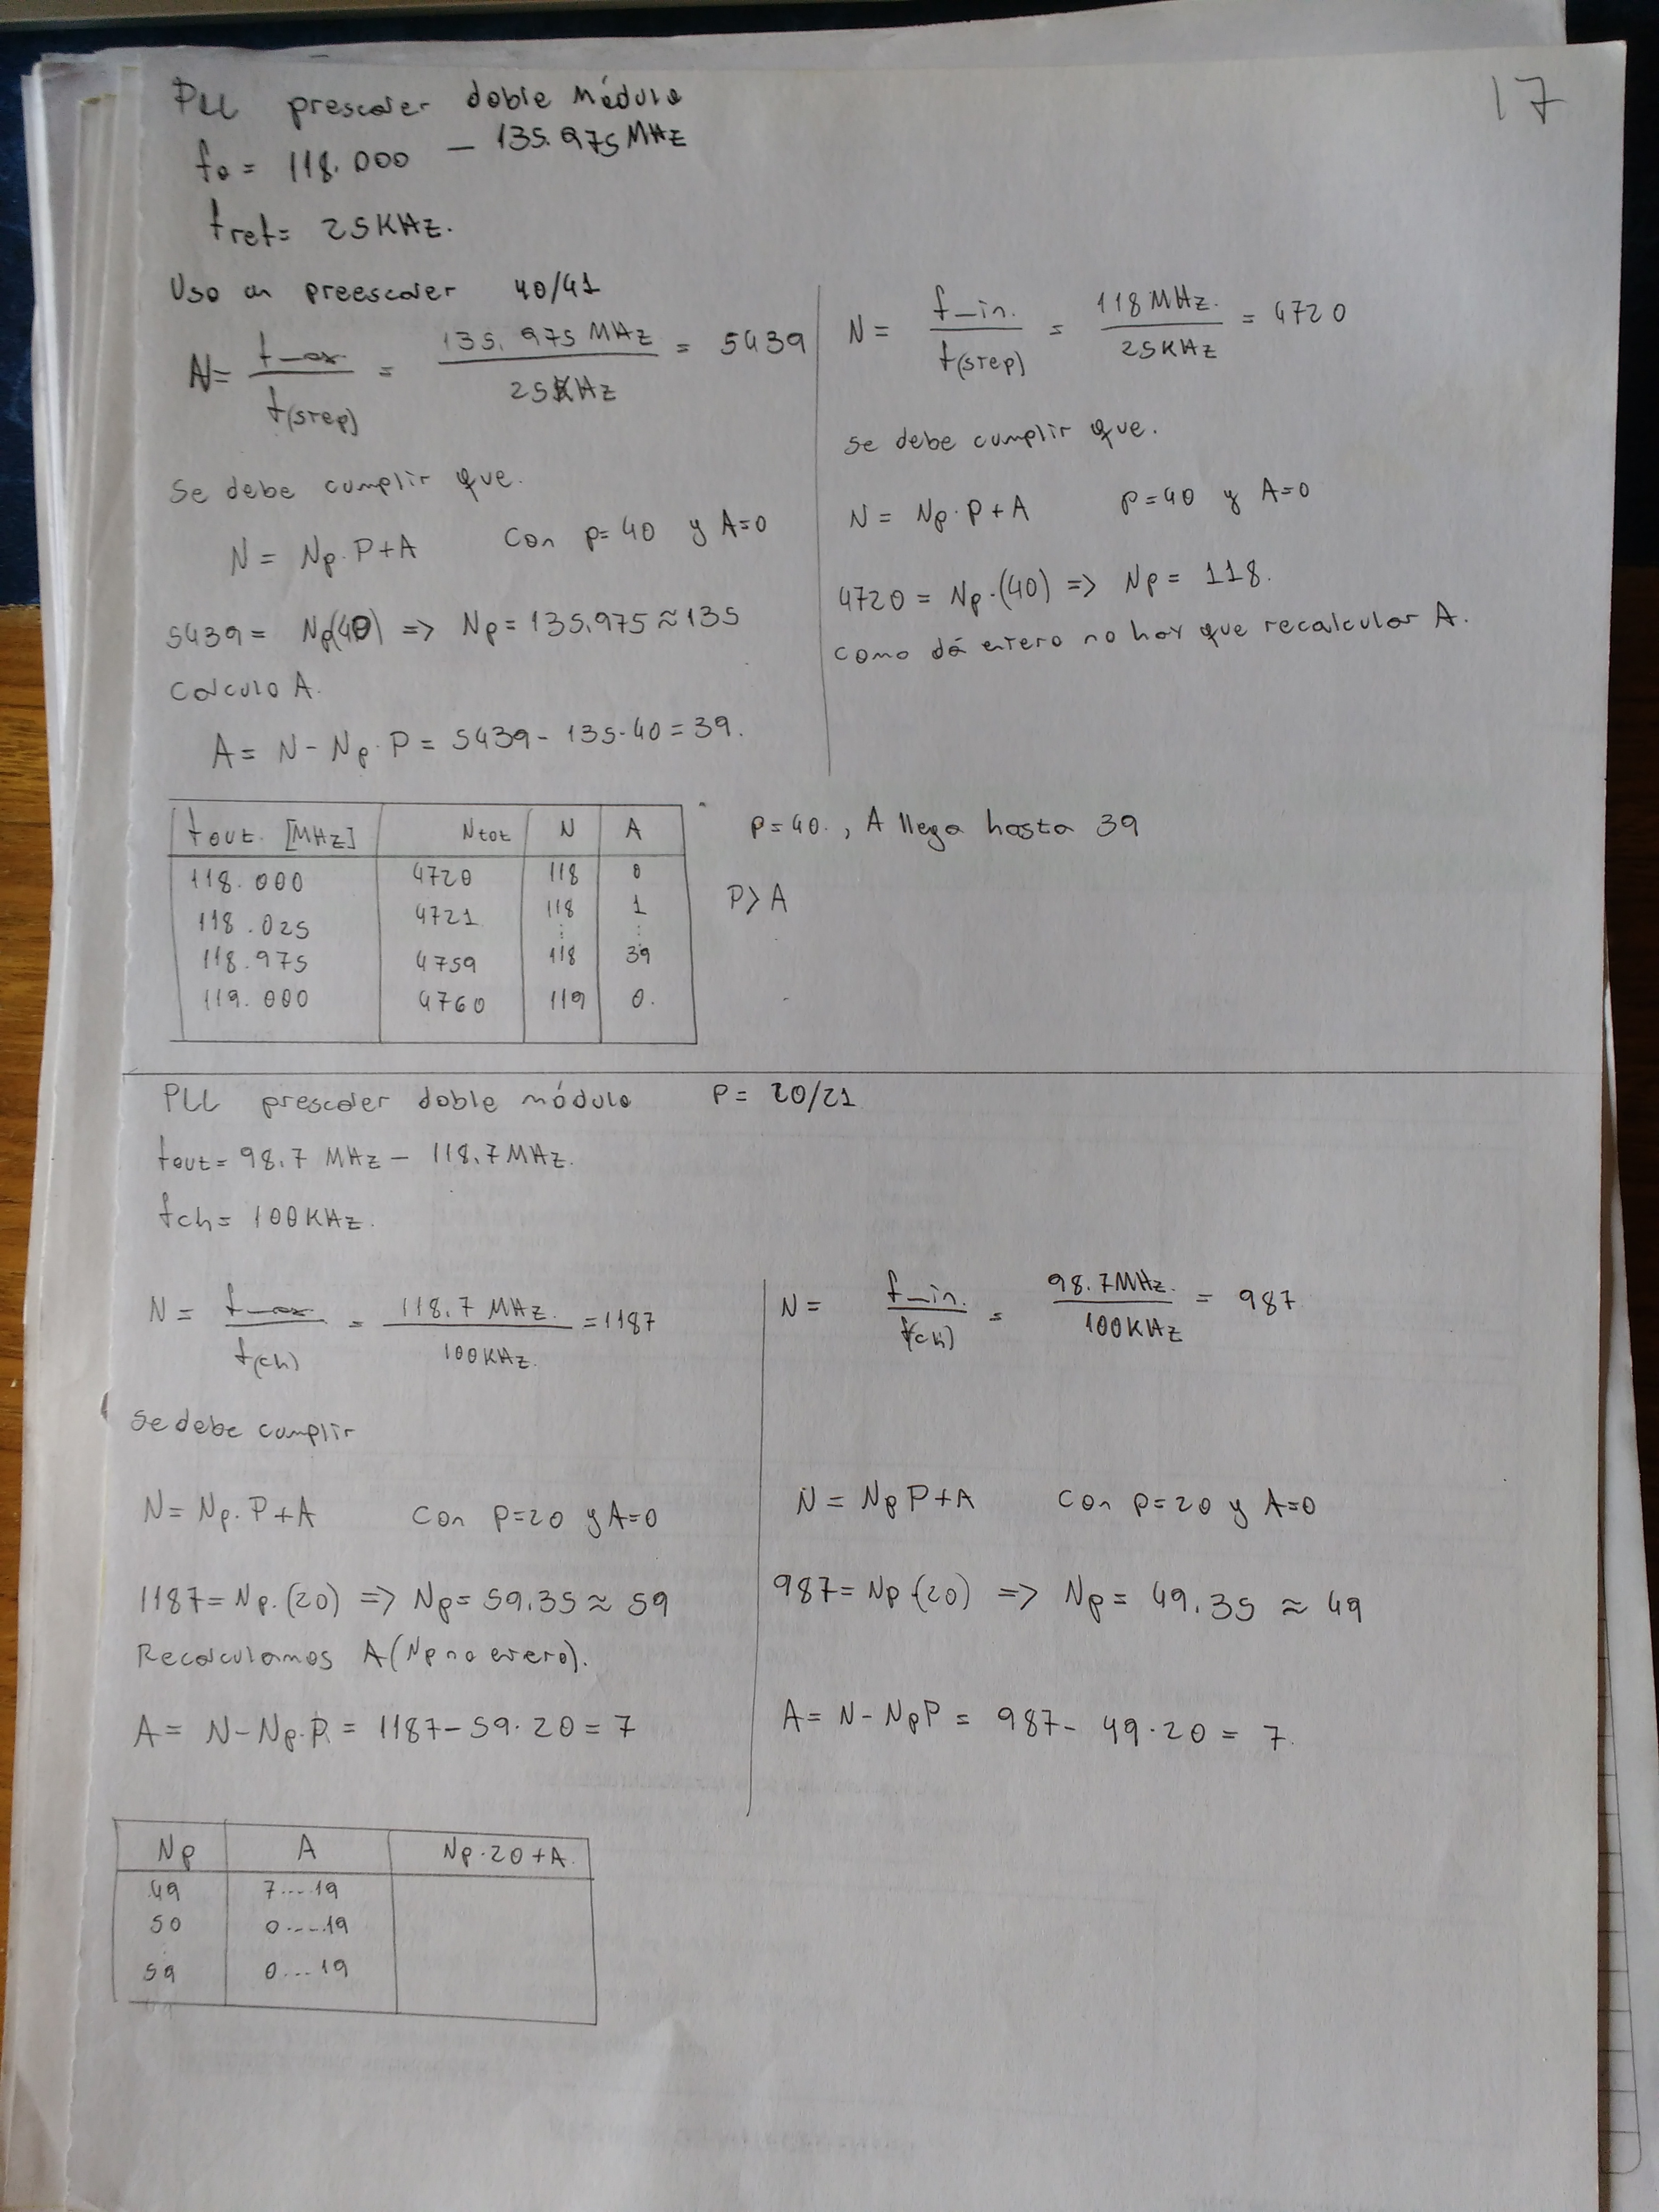 17
PLL prescaler doble módulo
fo = 118.000 - 135.975 MHz
fref = 25KHz.
Uso un preescaler 40/41
N = fmax / f(step) = 135.975 MHz / 25KHz = 5439
Se debe cumplir que.
N = Np.P+A Con p=40 y A=0
5439 = Np(40) => Np = 135.975 ≈ 135
Calculo A.
A = N - Np.P = 5439 - 135.40 = 39.
N = fmin. / f(step) = 118 MHz. / 25KHz = 4720
se debe cumplir que.
N = Np.P+A p=40 y A=0
4720 = Np.(40) => Np = 118.
como dá entero no hay que recalcular A.
fout. [MHz] Ntot N A
118.000 4720 118 0
118.025 4721 118 1
⋮ ⋮
118.975 4759 118 39
119.000 4760 119 0.
p=40., A llega hasta 39
P>A
PLL prescaler doble módulo P= 20/21
fout = 98.7 MHz - 118.7 MHz.
fch = 100KHz.
N = fmax / f(ch) = 118.7 MHz. / 100KHz. = 1187
Se debe cumplir
N = Np.P+A Con p=20 y A=0
1187 = Np.(20) => Np = 59.35 ≈ 59
Recalculamos A (Np no entero).
A = N-Np.P. = 1187-59.20 = 7
N = fmin. / f(ch) = 98.7MHz. / 100KHz = 987
N = Np P+A Con p=20 y A=0
987 = Np.(20) => Np = 49.35 ≈ 49
A = N-NpP = 987- 49.20 = 7.
Np A Np.20+A.
49 7....19
50 0....19
59 0...19